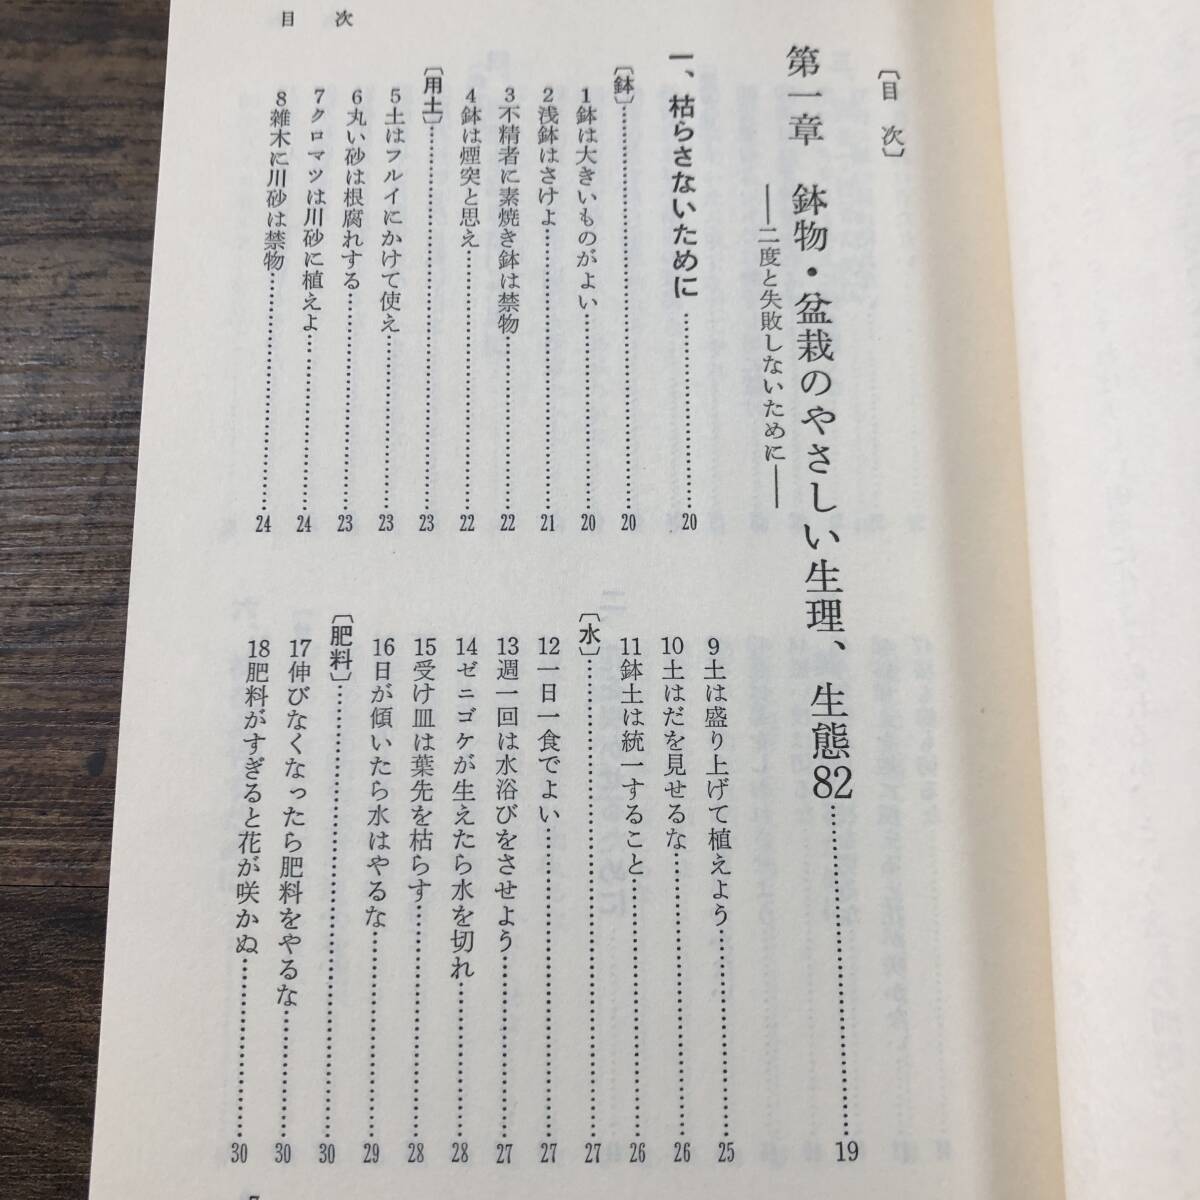 目次
〔目次〕
第一章　鉢物・盆栽のやさしい生理、生態82……19
──二度と失敗しないために──
一、枯らさないために……20
〔鉢〕……20
1鉢は大きいものがよい……20
2浅鉢はさけよ……21
3不精者に素焼き鉢は禁物……22
4鉢は煙突と思え……22
〔用土〕……23
5土はフルイにかけて使え……23
6丸い砂は根腐れする……23
7クロマツは川砂に植えよ……24
8雑木に川砂は禁物……24
9土は盛り上げて植えよう……25
10土はだを見せるな……26
11鉢土は統一すること……26
〔水〕……27
12一日一食でよい……27
13週一回は水浴びをさせよう……27
14ゼニゴケが生えたら水を切れ……28
15受け皿は葉先を枯らす……28
16日が傾いたら水はやるな……29
〔肥料〕……30
17伸びなくなったら肥料をやるな……30
18肥料がすぎると花が咲かぬ……30